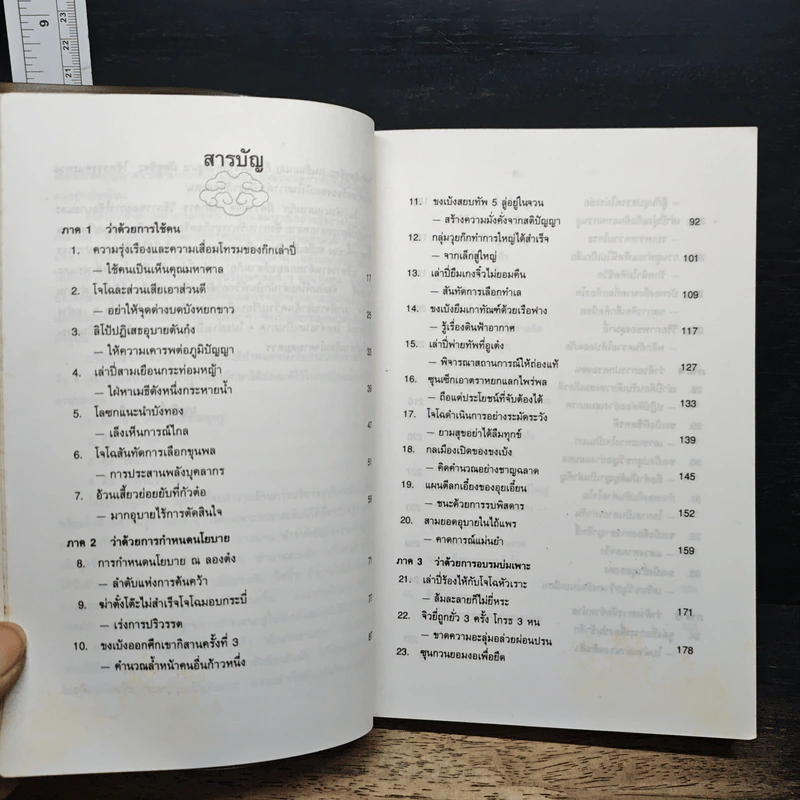 9
23
22
21
สารบัญ
ภาค 1 ว่าด้วยการใช้คน
1. ความรุ่งเรืองและความเสื่อมโทรมของก๊กเล่าปี่
— ใช้คนเป็นเห็นคุณมหาศาล 17
2. โจโฉละส่วนเสียเอาส่วนดี
— อย่าให้จุดด่างบดบังหยกขาว 25
3. ลิโป้ปฏิเสธอุบายตันก๋ง
— ให้ความเคารพต่อภูมิปัญญา
4. เล่าปี่สามเยือนกระท่อมหญ้า
— ใฝ่หาเมธีดังหนึ่งกระหายน้ำ 39
5. โลซกแนะนำบังทอง
— เล็งเห็นการณ์ไกล 47
6. โจโฉสันทัดการเลือกขุนพล
— การประสานพลังบุคลากร 51
7. อ้วนเสี้ยวย่อยยับที่กัวต๋อ
— มากอุบายไร้การตัดสินใจ 59
ภาค 2 ว่าด้วยการกำหนดนโยบาย
8. การกำหนดนโยบาย ณ ลองต๋ง
— ลำดับแห่งการค้นคว้า 71
9. ฆ่าตั๋งโต๊ะไม่สำเร็จโจโฉมอบกระบี่
— เร่งการปริวรรต 77
10. ขงเบ้งออกศึกเขากิสานครั้งที่ 3
— คำนวณล้ำหน้าคนอื่นก้าวหนึ่ง 87
11. ขงเบ้งสยบทัพ 5 ลู่อยู่ในจวน
— สร้างความมั่งคั่งจากสติปัญญา 92
12. กลุ่มวุยก๊กทำการใหญ่ได้สำเร็จ
— จากเล็กสู่ใหญ่ 101
13. เล่าปี่ยืมเกงจิ๋วไม่ยอมคืน
— สันทัดการเลือกทำเล 109
14. ขงเบ้งยืมเกาทัณฑ์ด้วยเรือฟาง
— รู้เรื่องดินฟ้าอากาศ 117
15. เล่าปี่พ่ายทัพที่อูเต๋ง
— พิจารณาสถานการณ์ให้ถ่องแท้ 127
16. ซุนเซ็กเอาตราหยกแลกไพร่พล
— ถือแต่ประโยชน์ที่จับต้องได้ 133
17. โจโฉดำเนินการอย่างระมัดระวัง
— ยามสุขอย่าได้ลืมทุกข์ 139
18. กลเมืองเปิดของขงเบ้ง
— คิดคำนวณอย่างชาญฉลาด 145
19. แผนตีลกเอี๋ยงของอุยเอี๋ยน
— ชนะด้วยการรบพิสดาร 152
20. สามยอดอุบายในไถ้แพร
— คาดการณ์แม่นยำ 159
ภาค 3 ว่าด้วยการอบรมบ่มเพาะ
21. เล่าปี่ร้องไห้กับโจโฉหัวเราะ
— ล้มละลายก็ไม่ยี่หระ 171
22. จิวยี่ถูกยั่ว 3 ครั้ง โกรธ 3 หน
— ขาดความอะลุ่มอล่วยผ่อนปรน 178
23. ซุนกวนยอมงอเพื่อยืด